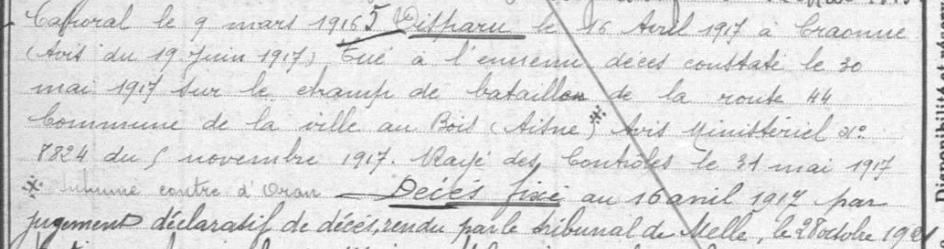 Caporal le 9 mars 1916 5 Disparu le 16 Avril 1917 à Craonne
(Avis du 19 Juin 1917) Tué à l'ennemi décès constaté le 30
mai 1917 sur le champ de bataille de la route 44
Commune de la ville au Bois (Aisne) Avis Ministériel No
7824 du 5 novembre 1917. Rayé des Contrôles le 31 mai 1917
Inhumé contre d'Oran — Décès fixé au 16 avril 1917 par
jugement déclaratif de décès, rendu par le tribunal de Melle, le 28 octobre 1921